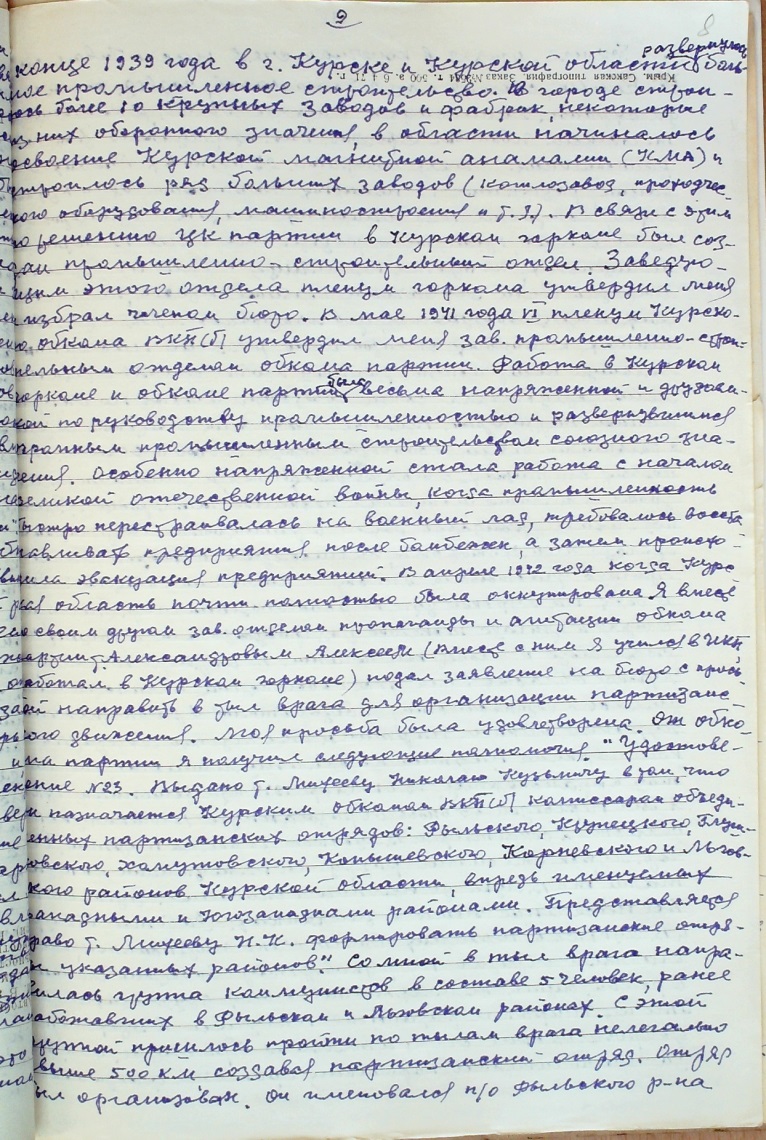 9
8
развернулось
конце 1939 года в г. Курске и Курской области боль-
Крым. Сакская типография. Заказ
шое промышленное строительство. В городе строи-
лось более 10 крупных заводов и фабрик, некоторые
из них оборонного значения, в области начиналось
освоение Курской магнитной анамалии (КМА) и
строилось ряд больших заводов (котлозавод, проходчес-
кого оборудования, машиностроения и т.д.). В связи с этим
по решению ЦК партии в Курском горкоме был соз-
дан промышленно-строительный отдел. Заведую-
щим этого отдела пленум горкома утвердил меня
и избрал членом бюро. В мае 1941 года VI пленум Курско-
го обкома ВКП(б) утвердил меня зав. промышленно-строи-
тельным отделом обкома партии. Работа в Курском
горкоме и обкоме партии была весьма напряженной и
по руководству промышленностью и развернувшимся
огромным промышленным строительством союзного зна-
чения. Особенно напряженной стала работа с началом
великой отечественной войны, когда промышленность
быстро перестраивалась на военный лад, требовалось восста-
навливать предприятия после бомбежек, а затем происхо-
дила эвакуация предприятий. В апреле 1942 года когда Курс-
кая область почти полностью была оккупирована Я вместе
со своим другом зав. отделом пропаганды и агитации обкома
партии т. Александровым Алексеем (вместе с ним я учился в ИКП,
работал в Курском горкоме) подал заявление на бюро с прось-
бой направить в тыл врага для организации партизанс-
кого движения. Моя просьба была удовлетворена. От обко-
ма партии я получил следующие полномочия. "Удостове-
рение №23. Выдано т. Михееву Николаю Кузьмичу в том, что
назначается Курским обкомом ВКП(б) комиссаром объеди-
ненных партизанских отрядов: Рыльского, Кузнецкого, Глуш-
ковского, Хомутовского, Конышевского, Кореневского и Льгов-
ского районов Курской области, впредь именуемых
западными и Югозападными районами. Предоставляется
право т. Михееву Н.К. формировать партизанские отря-
ды указанных районов." Со мной в тыл врага напра-
вилась группа коммунистов в составе 5 человек, ранее
работавших в Рыльском и Льговском районах. С этой
группой пришлось пройти по тылам врага нелегально
свыше 500 км создавая партизанский отряд. Отряд
был организован. Он именовался п/о Рыльского р-на